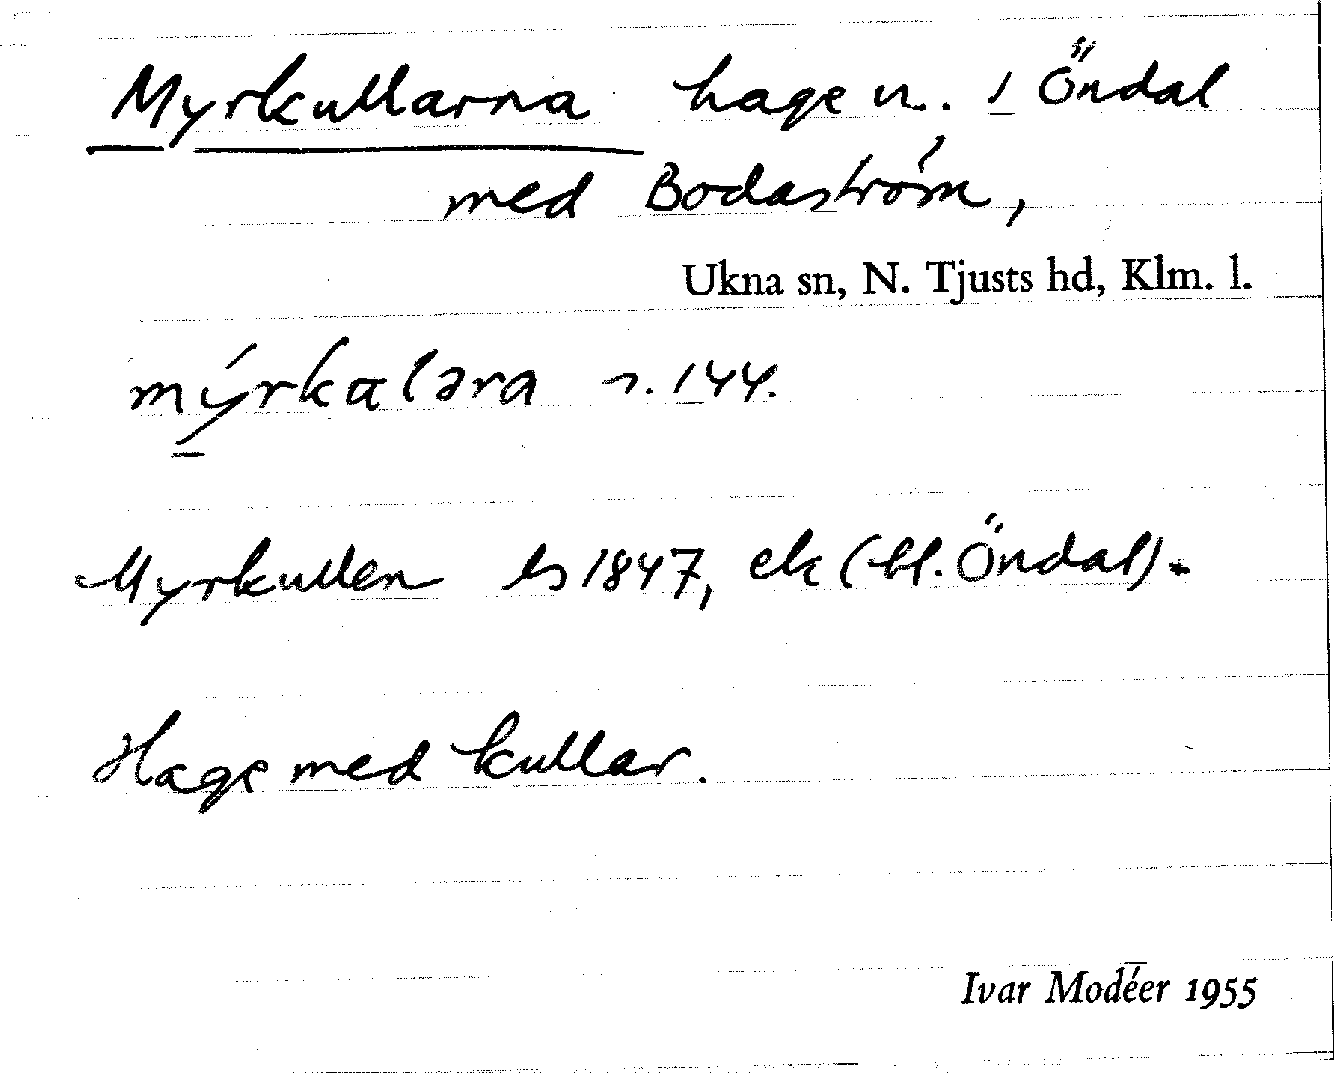 Myrkullarna hage n. 1 Öndal
med Bodaström,
Ukna sn, N. Tjusts hd, Klm. l.
mýrkaləra n. 144.
Myrkullen ls 1847, ek (bl. Öndal).
Hage med kullar.
Ivar Modéer 1955